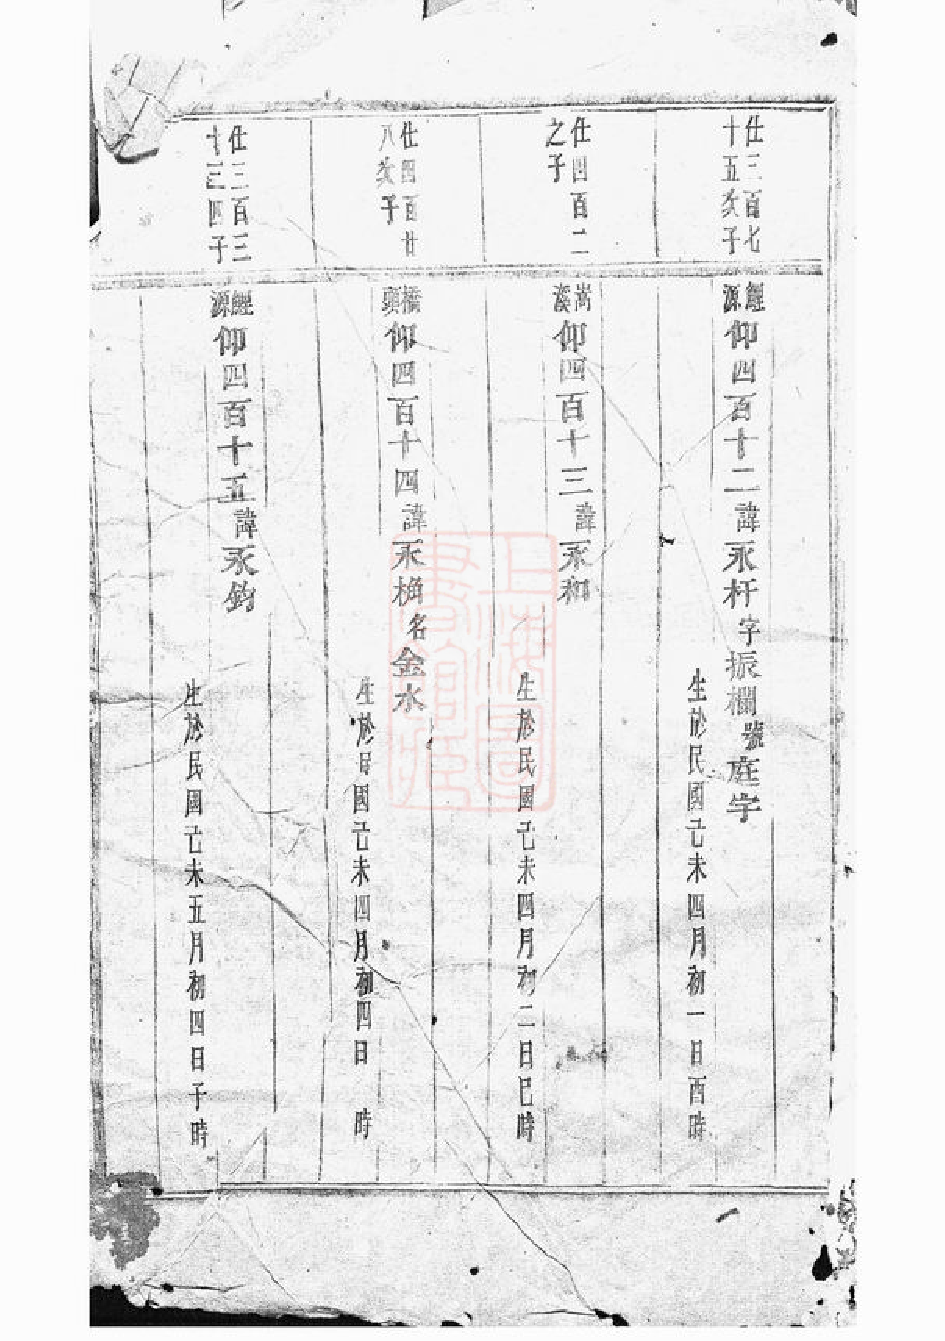 仕三百七
十五次子
經源仰四百十二諱永杆字振欄號庭宇
生於民國己未四月初一日酉時
仕四百二
之子
嵩溪仰四百十三諱永和
生於民國己未四月初二日巳時
仕四百廿
八次子
橋頭仰四百十四諱永桷名金水
生於民國己未四月初四日 時
仕三百三
十三四子
經源仰四百十五諱永鈞
生於民國己未五月初四日子時